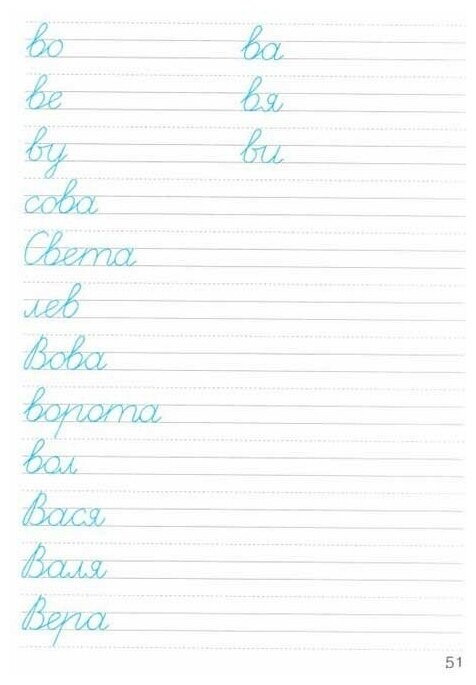 во ва
ве вя
ву ви
сова
Света
лев
Вова
ворота
вол
Вася
Валя
Вера
51